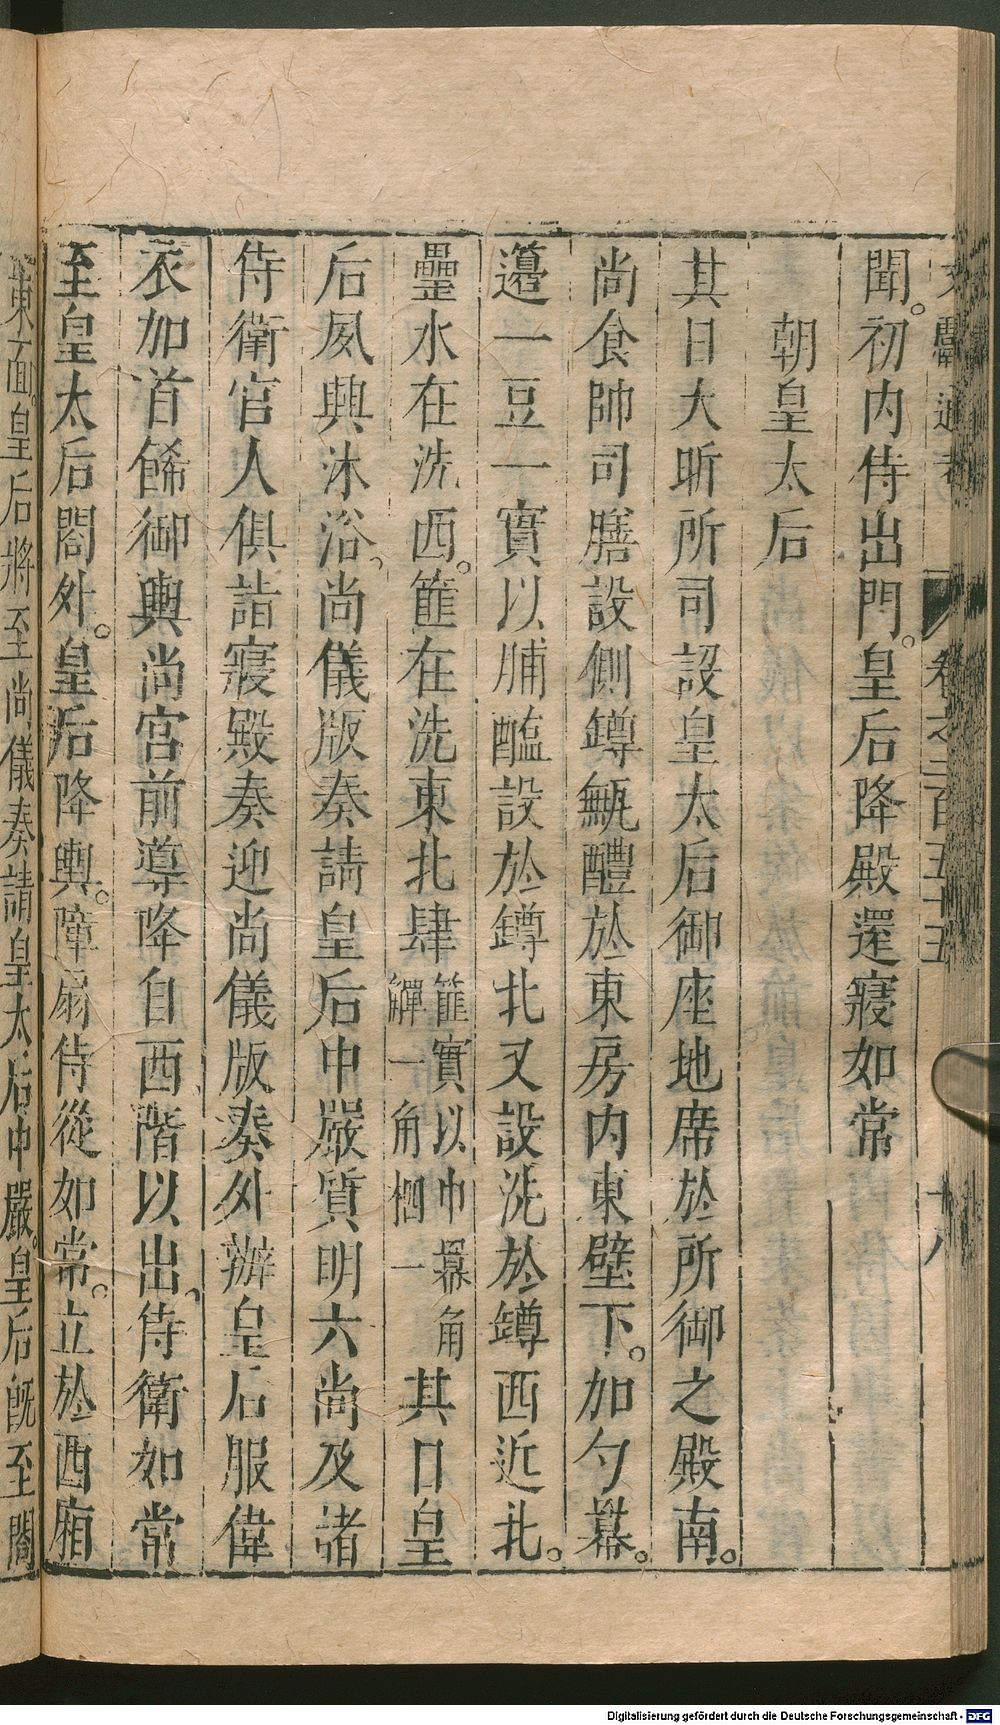 文獻通考 卷之二百五十五 十八
聞。初内侍出門。皇后降殿還寢如常
朝皇太后
其日大昕所司設皇太后御座地席於所御之殿南。
尚食帥司膳設側罇甒醴於東房内東壁下。加勺羃。
籩一豆一實以脯醢設於罇北又設洗於罇西近北。
罍水在洗西。篚在洗東北肆篚實以巾羃角觶一角柶一其日皇
后夙興沐浴、尚儀版奏請皇后中嚴質明六尚及諸
侍衛官人俱詣寢殿奏迎尚儀版奏外辦皇后服褘
衣加首飾御輿尚宮前導降自西階以出、侍衛如常
至皇太后閤外。皇后降輿。障扇侍從如常。立於西廂
東面。皇后將至尚儀奏請皇太后中嚴。皇后旣至閤
Digitalisierung gefördert durch die Deutsche Forschungsgemeinschaft - DFG